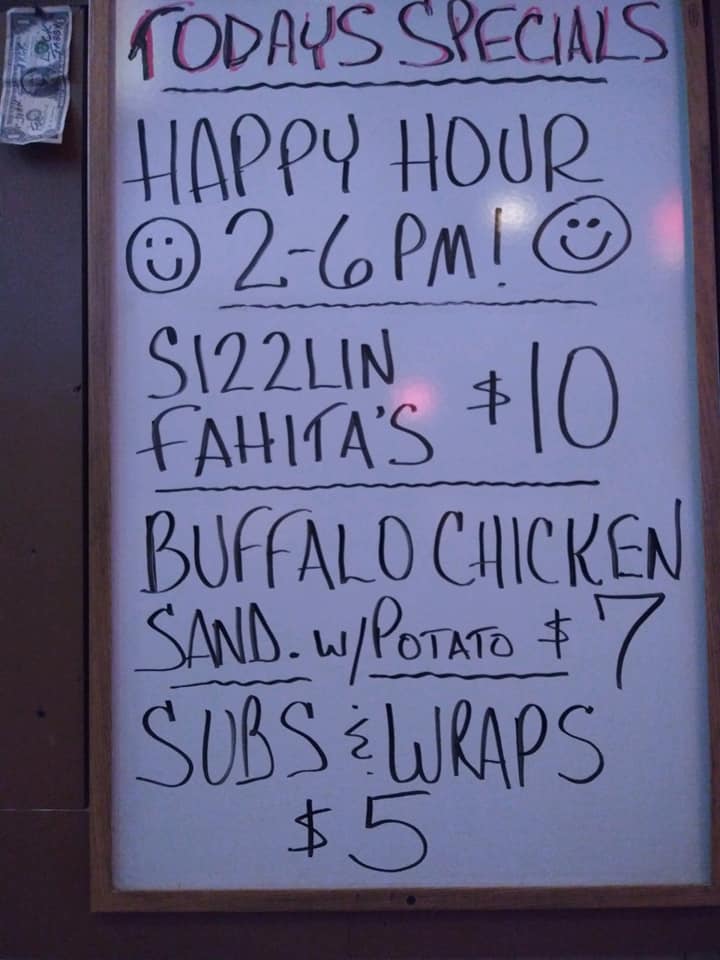 TODAYS SPECIALS
HAPPY HOUR
2-6 PM!
SIZZLIN
FAHITA'S $10
BUFFALO CHICKEN
SAND. W/POTATO $7
SUBS & WRAPS
$5